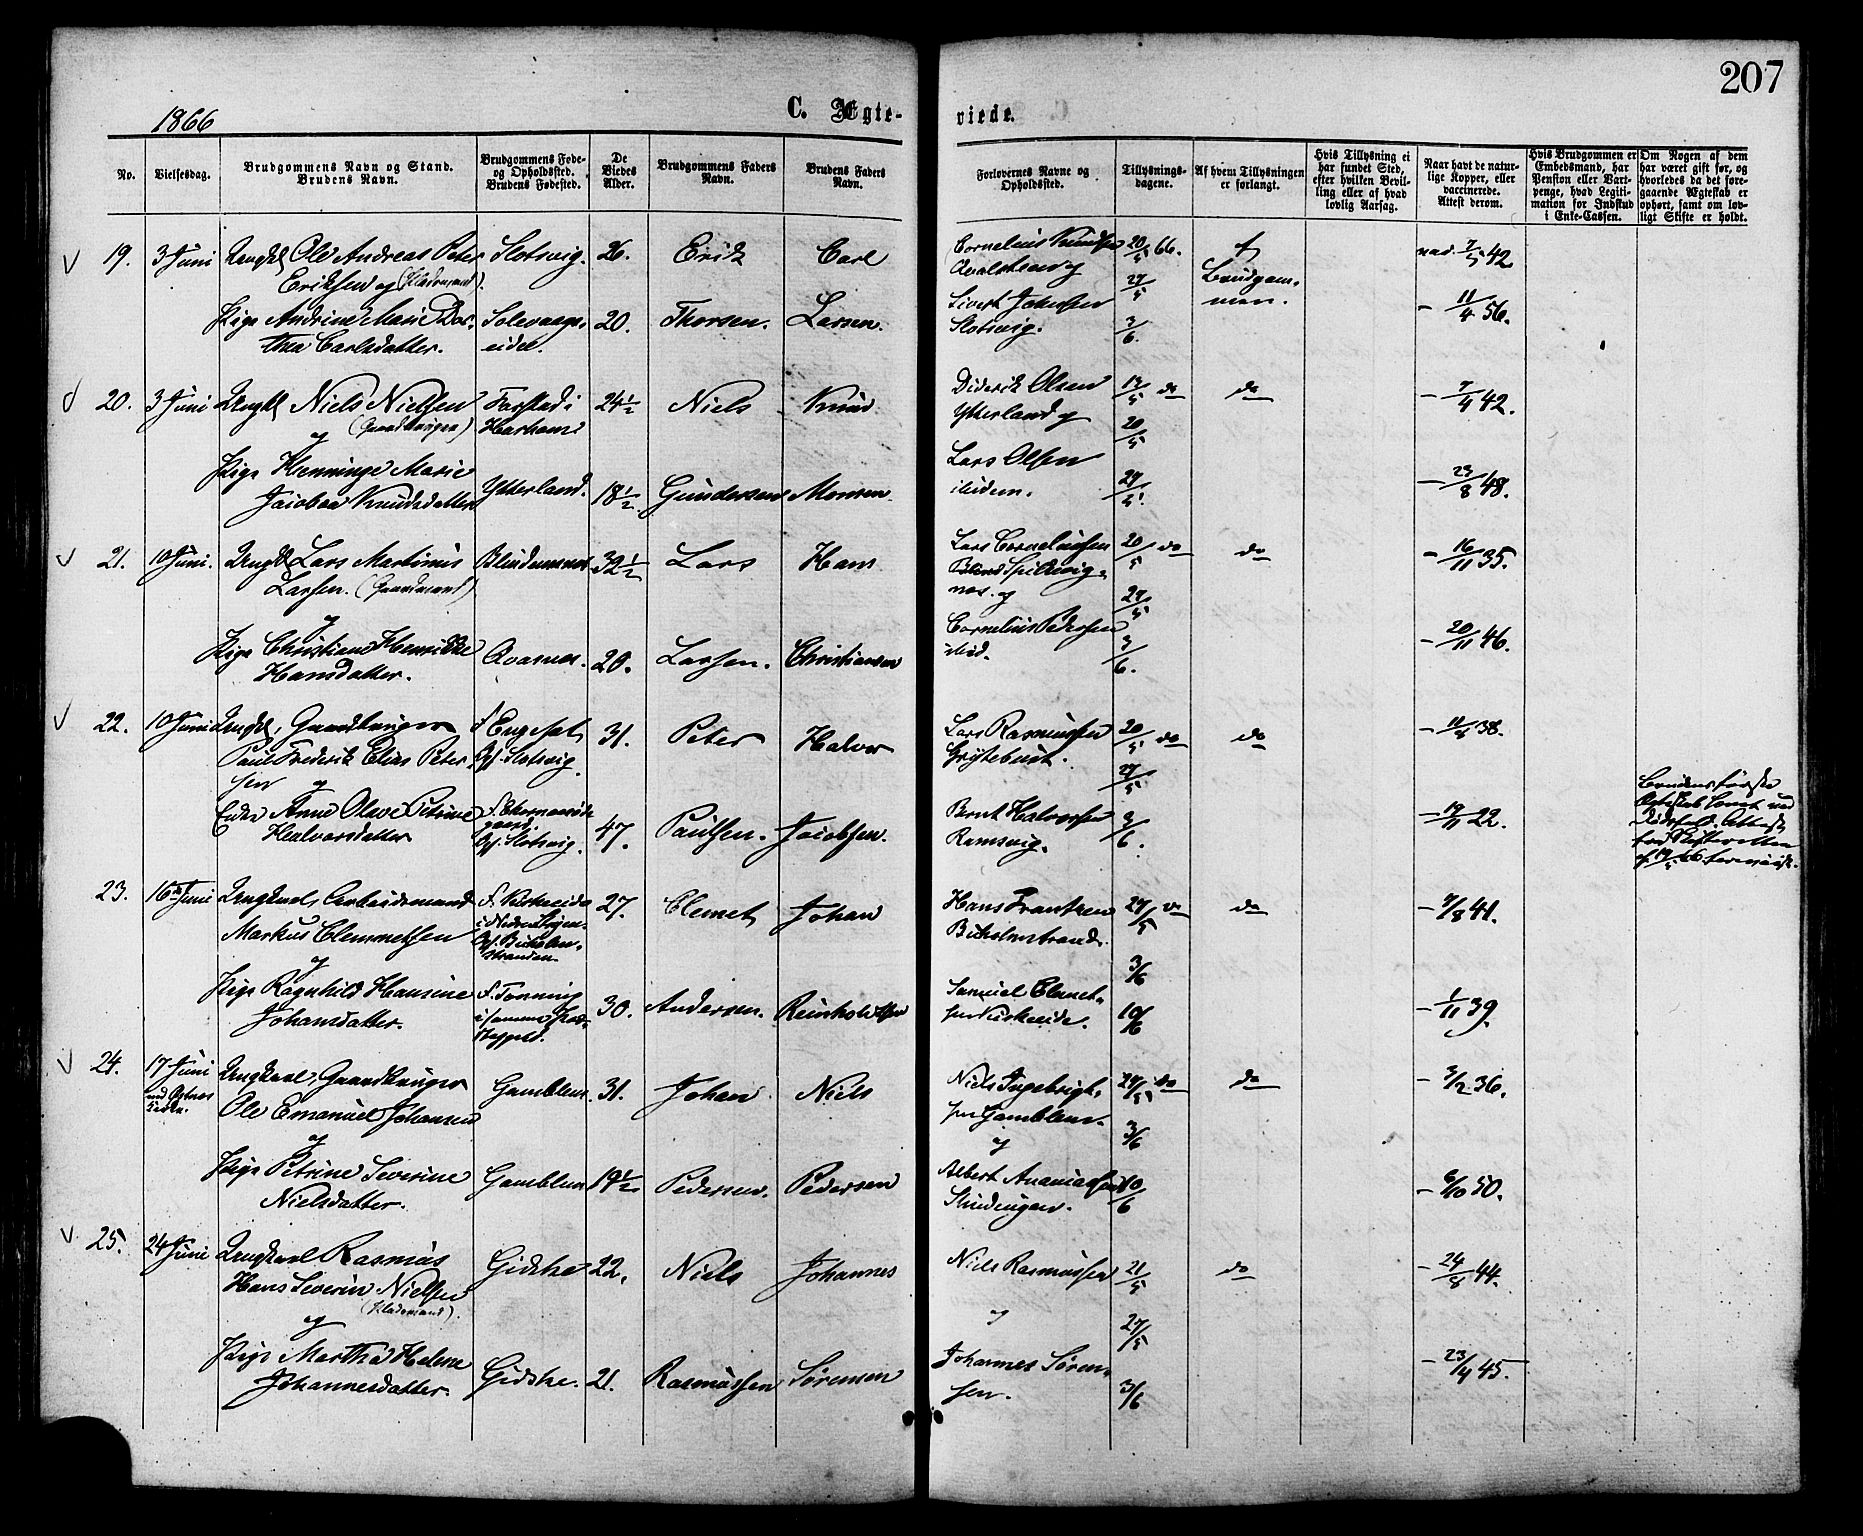 207
1866
C. Ægte-
viede.
No.
Vielsesdag.
Brudgommens Navn og Stand.
Brudens Navn.
Brudgommens Føde-
og Opholdssted.
Brudens Fødested.
De
Viedes
Alder.
Brudgommens Faders
Navn.
Brudens Faders
Navn.
Forlovernes Navne og
Opholdssted.
Tillysnings-
dagene.
Af hvem Tillysningen
er forlangt.
Hvis Tillysning ei
har fundet Sted,
efter hvilken Bevil-
ling eller af hvad
lovlig Aarsag.
Naar havt de natur-
lige Kopper, eller
vaccinerede.
Attest derom.
Hvis Brudgommen er
Embedsmand, har
Pension eller Vart-
penge, hvad Legiti-
mation for Indskud
i Enke-Cassen.
Om Nogen af dem
har været gift før, og
hvorledes da det fore-
gaaende Ægteskab er
ophørt, samt om lov-
ligt Skifte er holdt.
19. 3 Juni Ungkl Ole Andreas Peter Slotsvig. 26. Erik Carl
Eriksen og
Pige Andrine Marie Dor- Solevaags- 20. Thorsen. Larsen.
thea Carlsdatter. eidet.
Cornelius Knudsen 20/5 66. Brudgom-
og 27/5 men.
Sivert Johnsen
Slotsvig. 3/6.
7/5 42
- 11/4 56.
20. 3 Juni Ungkl Niels Nielsen Farstad i 24 1/2 Niels Knud
(Gaardbruger) Harham
og
Pige Henninge Marie Ytterland. 18 1/2 Gundersen Monsen.
Jacobea Knudsdatter
Diderik Olsen 13/5 do do - 7/4 42.
Ytterland og 20/5
Lars Olsen 27/5. - 23/8 48.
ibidem.
21. 10 Juni. Ungkl Lars Martinus Blindemnes 32 1/2 Lars Hans
Larsen. (Gaardmand)
og
Pige Christiane Henrikke Qvasnes. 20. Larsen. Christiansen
Hansdatter.
Lars Corneliussen 20/5 do do - 16/11 35.
Spilkevig-
nes. og 27/5
Cornelius Pedersen 3/6. - 20/11 46.
ibid.
22. 10 Juni Ungkl, Gaardbruger f. Engeset, 31. Peter Halvor
Paul Frederik Elias Peter- Slotsvig
sen og
Enke Anne Olave Petrine 47. Paulsen. Jacobsen.
Halvorsdatter Slotsvig.
Lars Rasmussen 20/5 do do - 11/8 38.
Grytebust. 27/5
Bernt Halvorsen 3/6. - 19/11 22.
Ramsvig.
Brudens første
Ægteskab
23. 16de Juni Ungkarl, Arbeidsmand 27. Clemet Johan
Markus Clemmetsen
og
Pige Ragnhild Hansine f. Tønning 30. Andersen. Reinholdtsen
Johansdatter.
Hans Frantzen 27/5 do do - 7/8 41.
3/6
Samuel Clemet- 10/6 - 1/11 39.
24. 17 Juni Ungkarl, Gaardbruger Gamblem 31. Johan Niels
Ole Emanuel Johansen
og
Pige Petrine Severine Gamblem 19 1/2 Pedersen. Pedersen
Nielsdatter.
Niels Ingebrigt- 27/5 do do - 3/2 36.
sen Gamblem. 3/6
og
Albert Ananiassen 10/6 - 6/10 50.
25. 24 Juni Ungkarl Rasmus Gidske 22. Niels Johannes
Hans Severin Nielsen
og
Pige Martha Helene Gidske. 21. Rasmussen Sørensen
Johannesdatter.
Niels Rasmussen 21/5 do - 24/8 44.
og 27/5
Johannes Søren- 3/6 - 23/4 45.
sen.